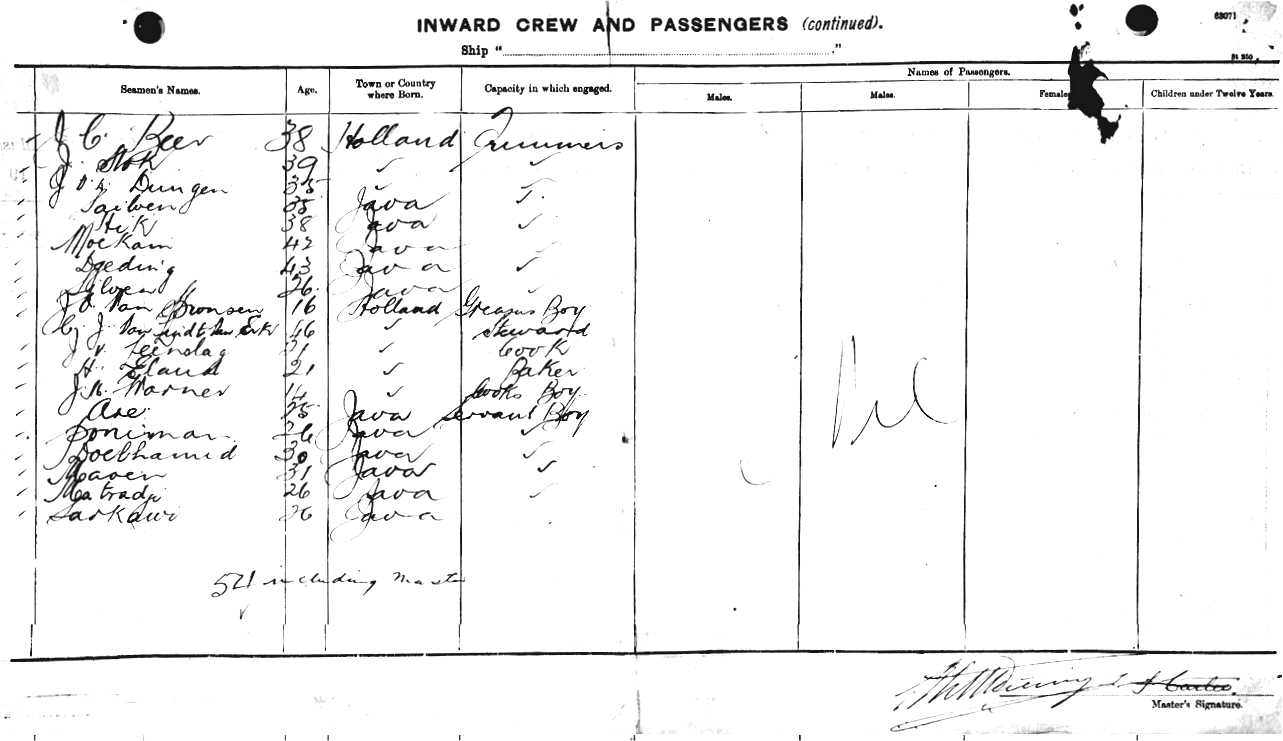 INWARD CREW AND PASSENGERS (continued).
63071
Ship "
Seamen's Names. Age. Town or Country where Born. Capacity in which engaged. Names of Passengers.
Males. Males. Females Children under Twelve Years.
J C Beer 38 Holland Trimmers
J. Stok 39 ✓ ✓
J v. d. Dungen 35 ✓
Sailven 35 Java
Hik 38 Java ✓
Moekain 42 Java ✓
Djeding 43 Java ✓
Silven 26 Java ✓
J. V. Van Bronsen 16 Holland Greasers Boy
C. J. Van 46 ✓ Steward
J v. Leindag 21 ✓ Cook
H. Eland 21 ✓ Baker
J. H. Warner 14 ✓ Cooks Boy
Are 25 Java Servant Boy
Doniman 26 Java ✓
Doelhamid 30 Java ✓
Maoen 31 Java ✓
Matradji 26 Java ✓
Sarkawi 26 Java
Nil
including Master
Master's Signature.